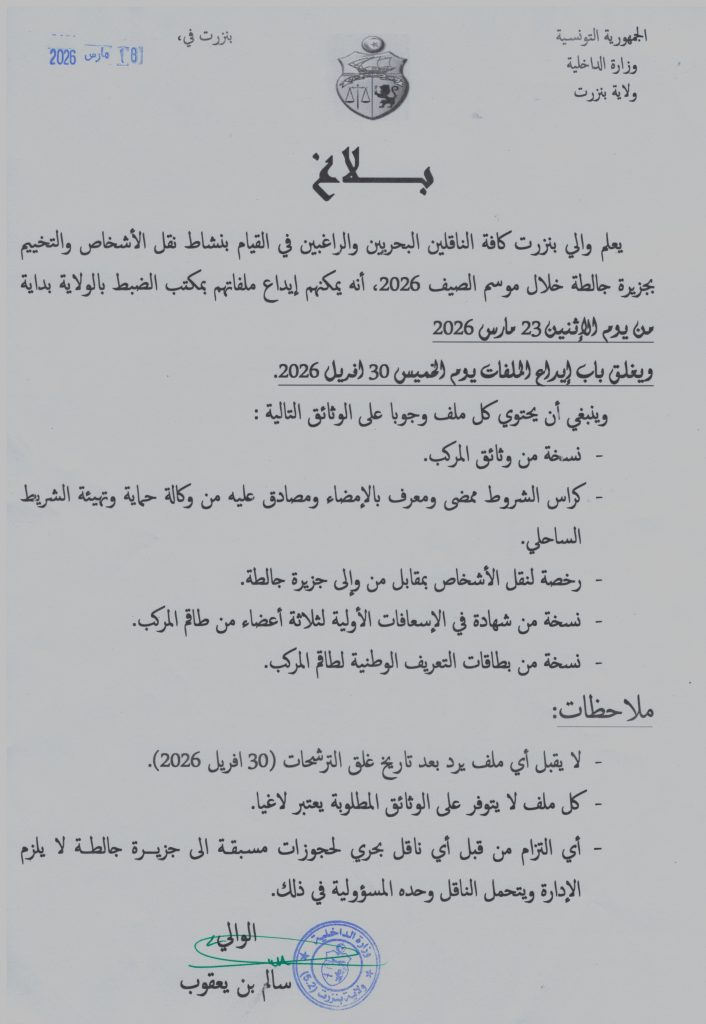 الجمهورية التونسية
وزارة الداخلية
ولاية بنزرت
بنزرت في،
18 مارس 2026
بـــلاغ
يعلم والي بنزرت كافة الناقلين البحريين والراغبين في القيام بنشاط نقل الأشخاص والتخييم
بجزيرة جالطة خلال موسم الصيف 2026، أنه يمكنهم إيداع ملفاتهم بمكتب الضبط بالولاية بداية
من يوم الإثنين 23 مارس 2026
ويغلق باب إيداع الملفات يوم الخميس 30 افريل 2026.
وينبغي أن يحتوي كل ملف وجوبا على الوثائق التالية :
- نسخة من وثائق المركب.
- كراس الشروط ممضى ومعرف بالإمضاء ومصادق عليه من وكالة حماية وتهيئة الشريط
الساحلي.
- رخصة لنقل الأشخاص بمقابل من وإلى جزيرة جالطة.
- نسخة من شهادة في الإسعافات الأولية لثلاثة أعضاء من طاقم المركب.
- نسخة من بطاقات التعريف الوطنية لطاقم المركب.
ملاحظات:
- لا يقبل أي ملف يرد بعد تاريخ غلق الترشحات (30 افريل 2026).
- كل ملف لا يتوفر على الوثائق المطلوبة يعتبر لاغيا.
- أي التزام من قبل أي ناقل بحري لحجوزات مسبقة الى جزيرة جالطة لا يلزم
الإدارة ويتحمل الناقل وحده المسؤولية في ذلك.
الوالي
سالم بن يعقوب
وزارة الداخلية
ولاية بنزرت (5.2)